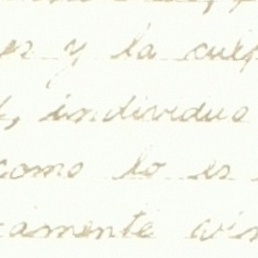 es y la culp
, individuo
como lo es
camente vis